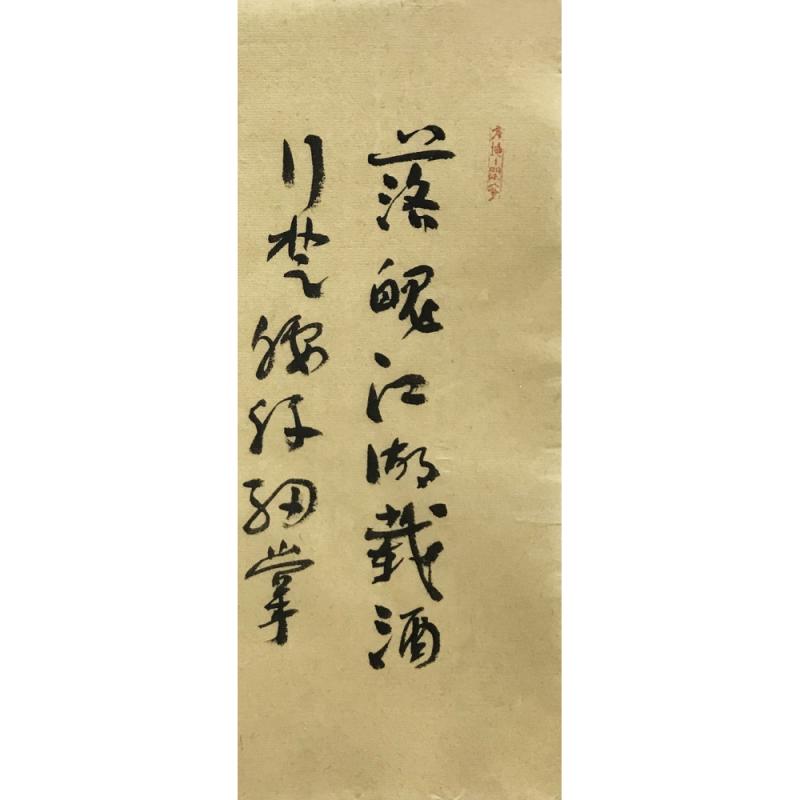 落魄江湖載酒
行楚腰纤細掌